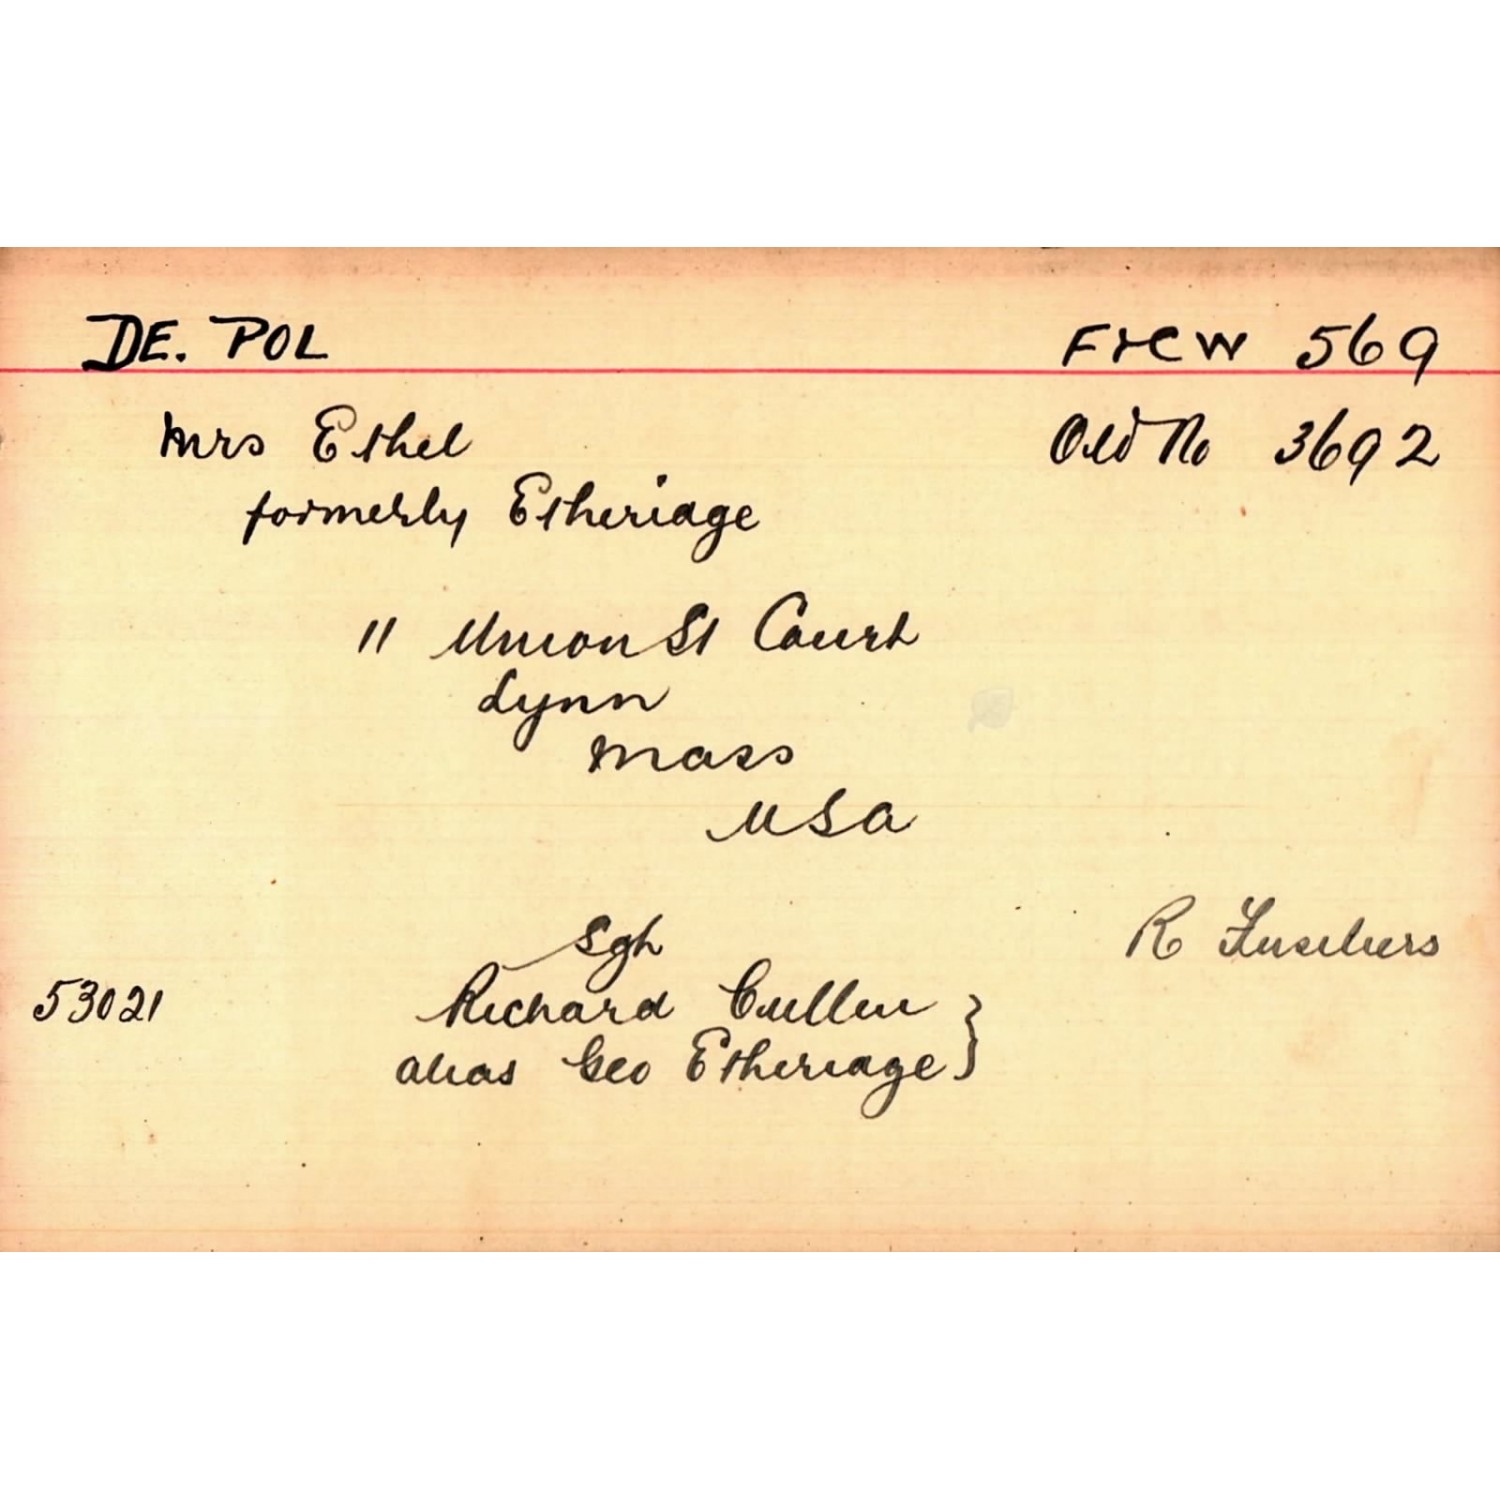 DE. POL FTCW 569
Mrs Ethel Old No 3692
formerly Etheridge
11 Union St Court
Lynn
Mass
USA
Sgt R Fusiliers
53021 Richard Cullen }
alias Geo Etheridge }